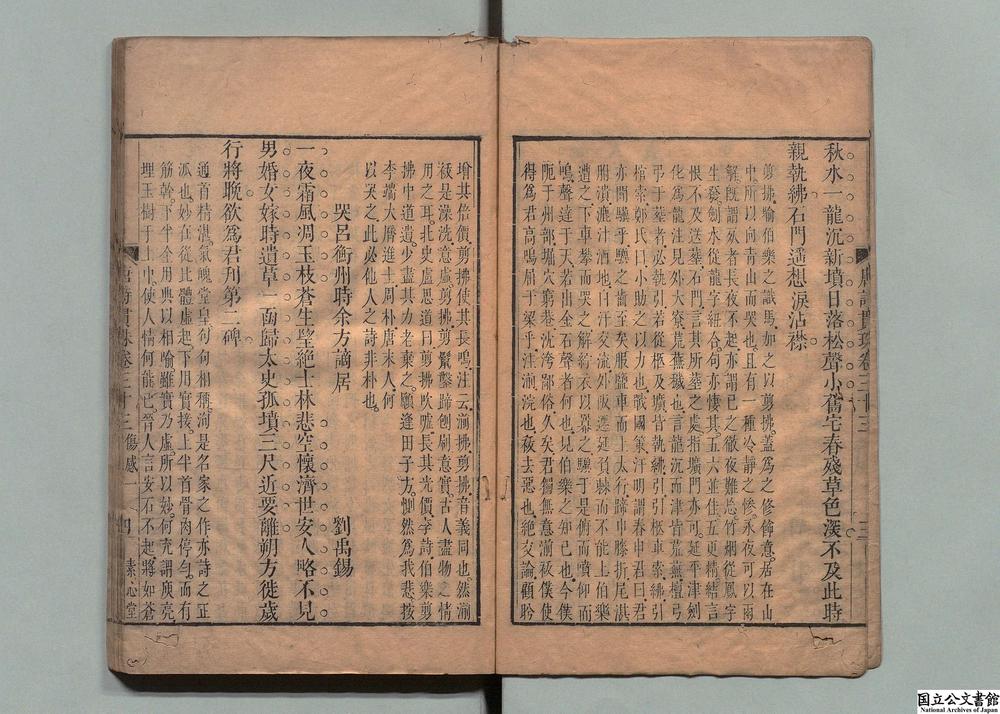 秋水一龍沉新墳日落松聲小舊宅春殘草色深不及此時
親執紼石門遥想淚沾襟
剪拂喻伯樂之識馬加之以剪拂蓋爲之修飾意居在山
中所以向青山而哭也且有一種冷靜之修永夜可以兩
解旣謂死者長夜不起亦謂已之徹夜難忘竹烟從鳳字
生發劒水從龍字紐合句亦悽其五六並佳五更精結言
恨不及送葬石門言其所葬之處指壙門亦可延平津劍
化爲龍注見外大寮荒蕪穢也言龍沉而津皆荒蕪檀弓
弔于葬者必執引若從柩及壙皆執紼引引柩車索紼引
棺索鄭氏曰小助之以力也戰國策汗明謂春申君曰君
亦聞驥乎驥之齒至矣服鹽車而上太行蹄申膝折尾湛
胕潰漉汁洒地白汗交流外阪遷延負棘而不能上伯樂
遭之下車攀而哭之解紵衣以羃之驥于是俯而噴仰而
鳴聲達于天若出金石聲者何也見伯樂之知已也今僕
阨于州部堀穴窮巷沈洿鄙俗久矣君獨無意湔祓僕使
得爲君高鳴屈于梁乎注湔浣也祓去惡也絶交論顧盻
唐詩貫珠卷三十三
三
增其倍價剪拂使其長鳴注云湔拂剪拂音義同也然湔
祓是澡洗意虛剪拂剪鬣鑿蹄刨刷意實古人盡物之情
用之耳北史盧思道曰剪拂吹噓長其光價李詩伯樂剪
拂中道遺少盡其力老棄之願逢田子方惻然爲我悲按
李端大曆進士周朴唐末人何
以哭之此必他人之詩非朴也
哭呂衡州時余方謫居
劉禹錫
一夜霜風凋玉枝蒼生望絶士林悲空懷濟世安人略不見
男婚女嫁時遺草一函歸太史孤墳三尺近要離朔方徙歲
行將晚欲爲君刋第二碑
通首精湛氣魄堂皇句句相稱洵是名家之作亦詩之正
派也妙在從比體虛起下用實接上半首骨肉停勻而有
筋幹下半全用典以相喻雖實乃虛所以妙何充謂庾亮
埋玉樹于土中使人情何能已晉人言安石不起將如蒼
唐詩貫珠卷三十三
傷感一
四
素心堂
国立公文書館
National Archives of Japan